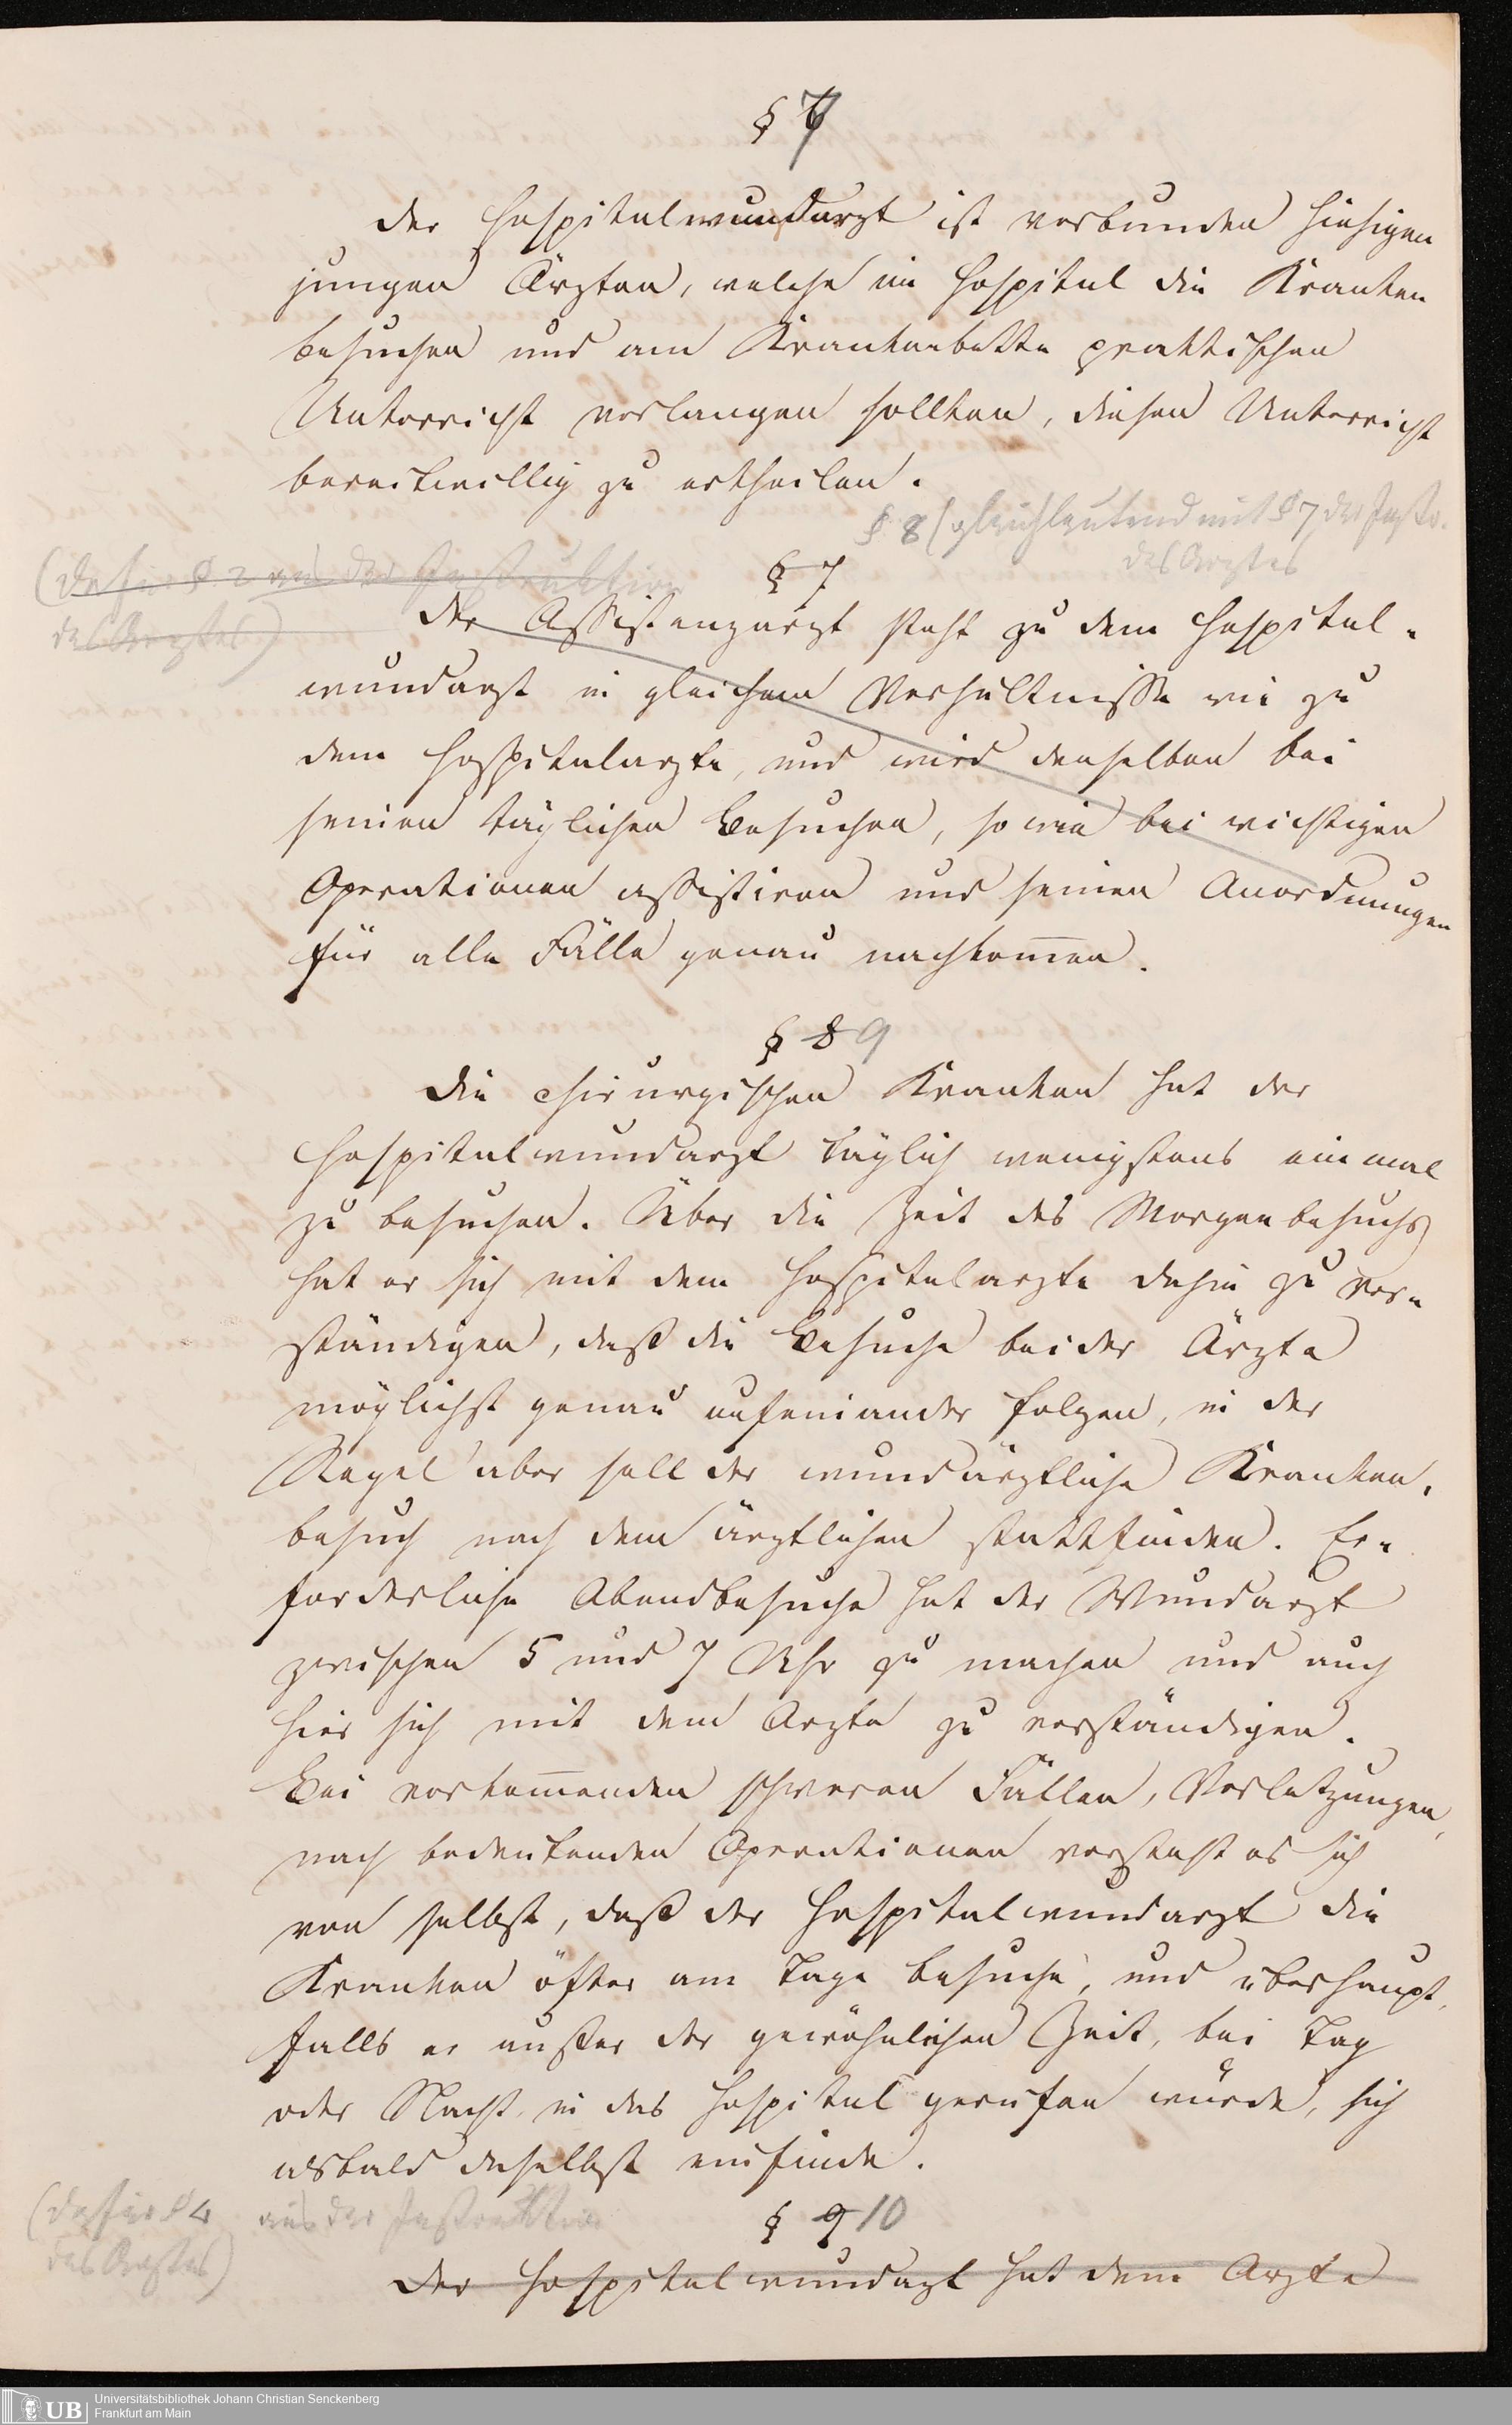 § 7
Der Hospitalwundarzt ist verbunden hiesigen
jungen Ärzten, welche im Hospital die Kranken
besuchen und am Krankenbette praktischen
Unterricht verlangen sollten, diesen Unterricht
bereitwillig zu ertheilen.
§ 8 (gleichlautend mit § 7 der Instr.
des Arztes
(Dafür § 2 aus der Instruktion
des Arztes)
§ 7
Der Assistenzarzt steht zu dem Hospital-
wundarzt in gleichem Verhältnisse wie zu
dem Hospitalarzte, und wird denselben bei
seinen täglichen Besuchen, so wie bei wichtigen
Operationen assistiren und seinen Anordnungen
für alle Fälle genau nachkom̅en.
§ 8 9
Die chirurgischen Kranken hat der
Hospitalwundarzt täglich wenigstens einmal
zu besuchen. Über die Zeit des Morgenbesuchs
hat er sich mit dem Hospitalarzte dahin zu ver-
ständigen, daß die Besuche beider Ärzte
möglichst genau aufeinander folgen, in der
Regel aber soll der wundärztliche Kranken-
besuch nach dem ärztlichen stattfinden. Er-
forderliche Abendbesuche hat der Wundarzt
zwischen 5 und 7 Uhr zu machen und auch
hier sich mit dem Arzte zu verständigen.
Bei vorkom̅enden schweren Fällen, Verletzungen,
nach bedeutenden Operationen versteht es sich
von selbst, daß der Hospitalwundarzt die
Kranken öfter am Tage besuche, und überhaupt,
falls er außer der gewöhnlichen Zeit, bei Tag
oder Nacht in das Hospital gerufen würde, sich
alsbald daselbst einfinde.
(Dafür § 4 aus der Instruktion
des Arztes)
§ 9 10
Der Hospitalwundarzt hat dem Arzte
UB
Universitätsbibliothek Johann Christian Senckenberg
Frankfurt am Main